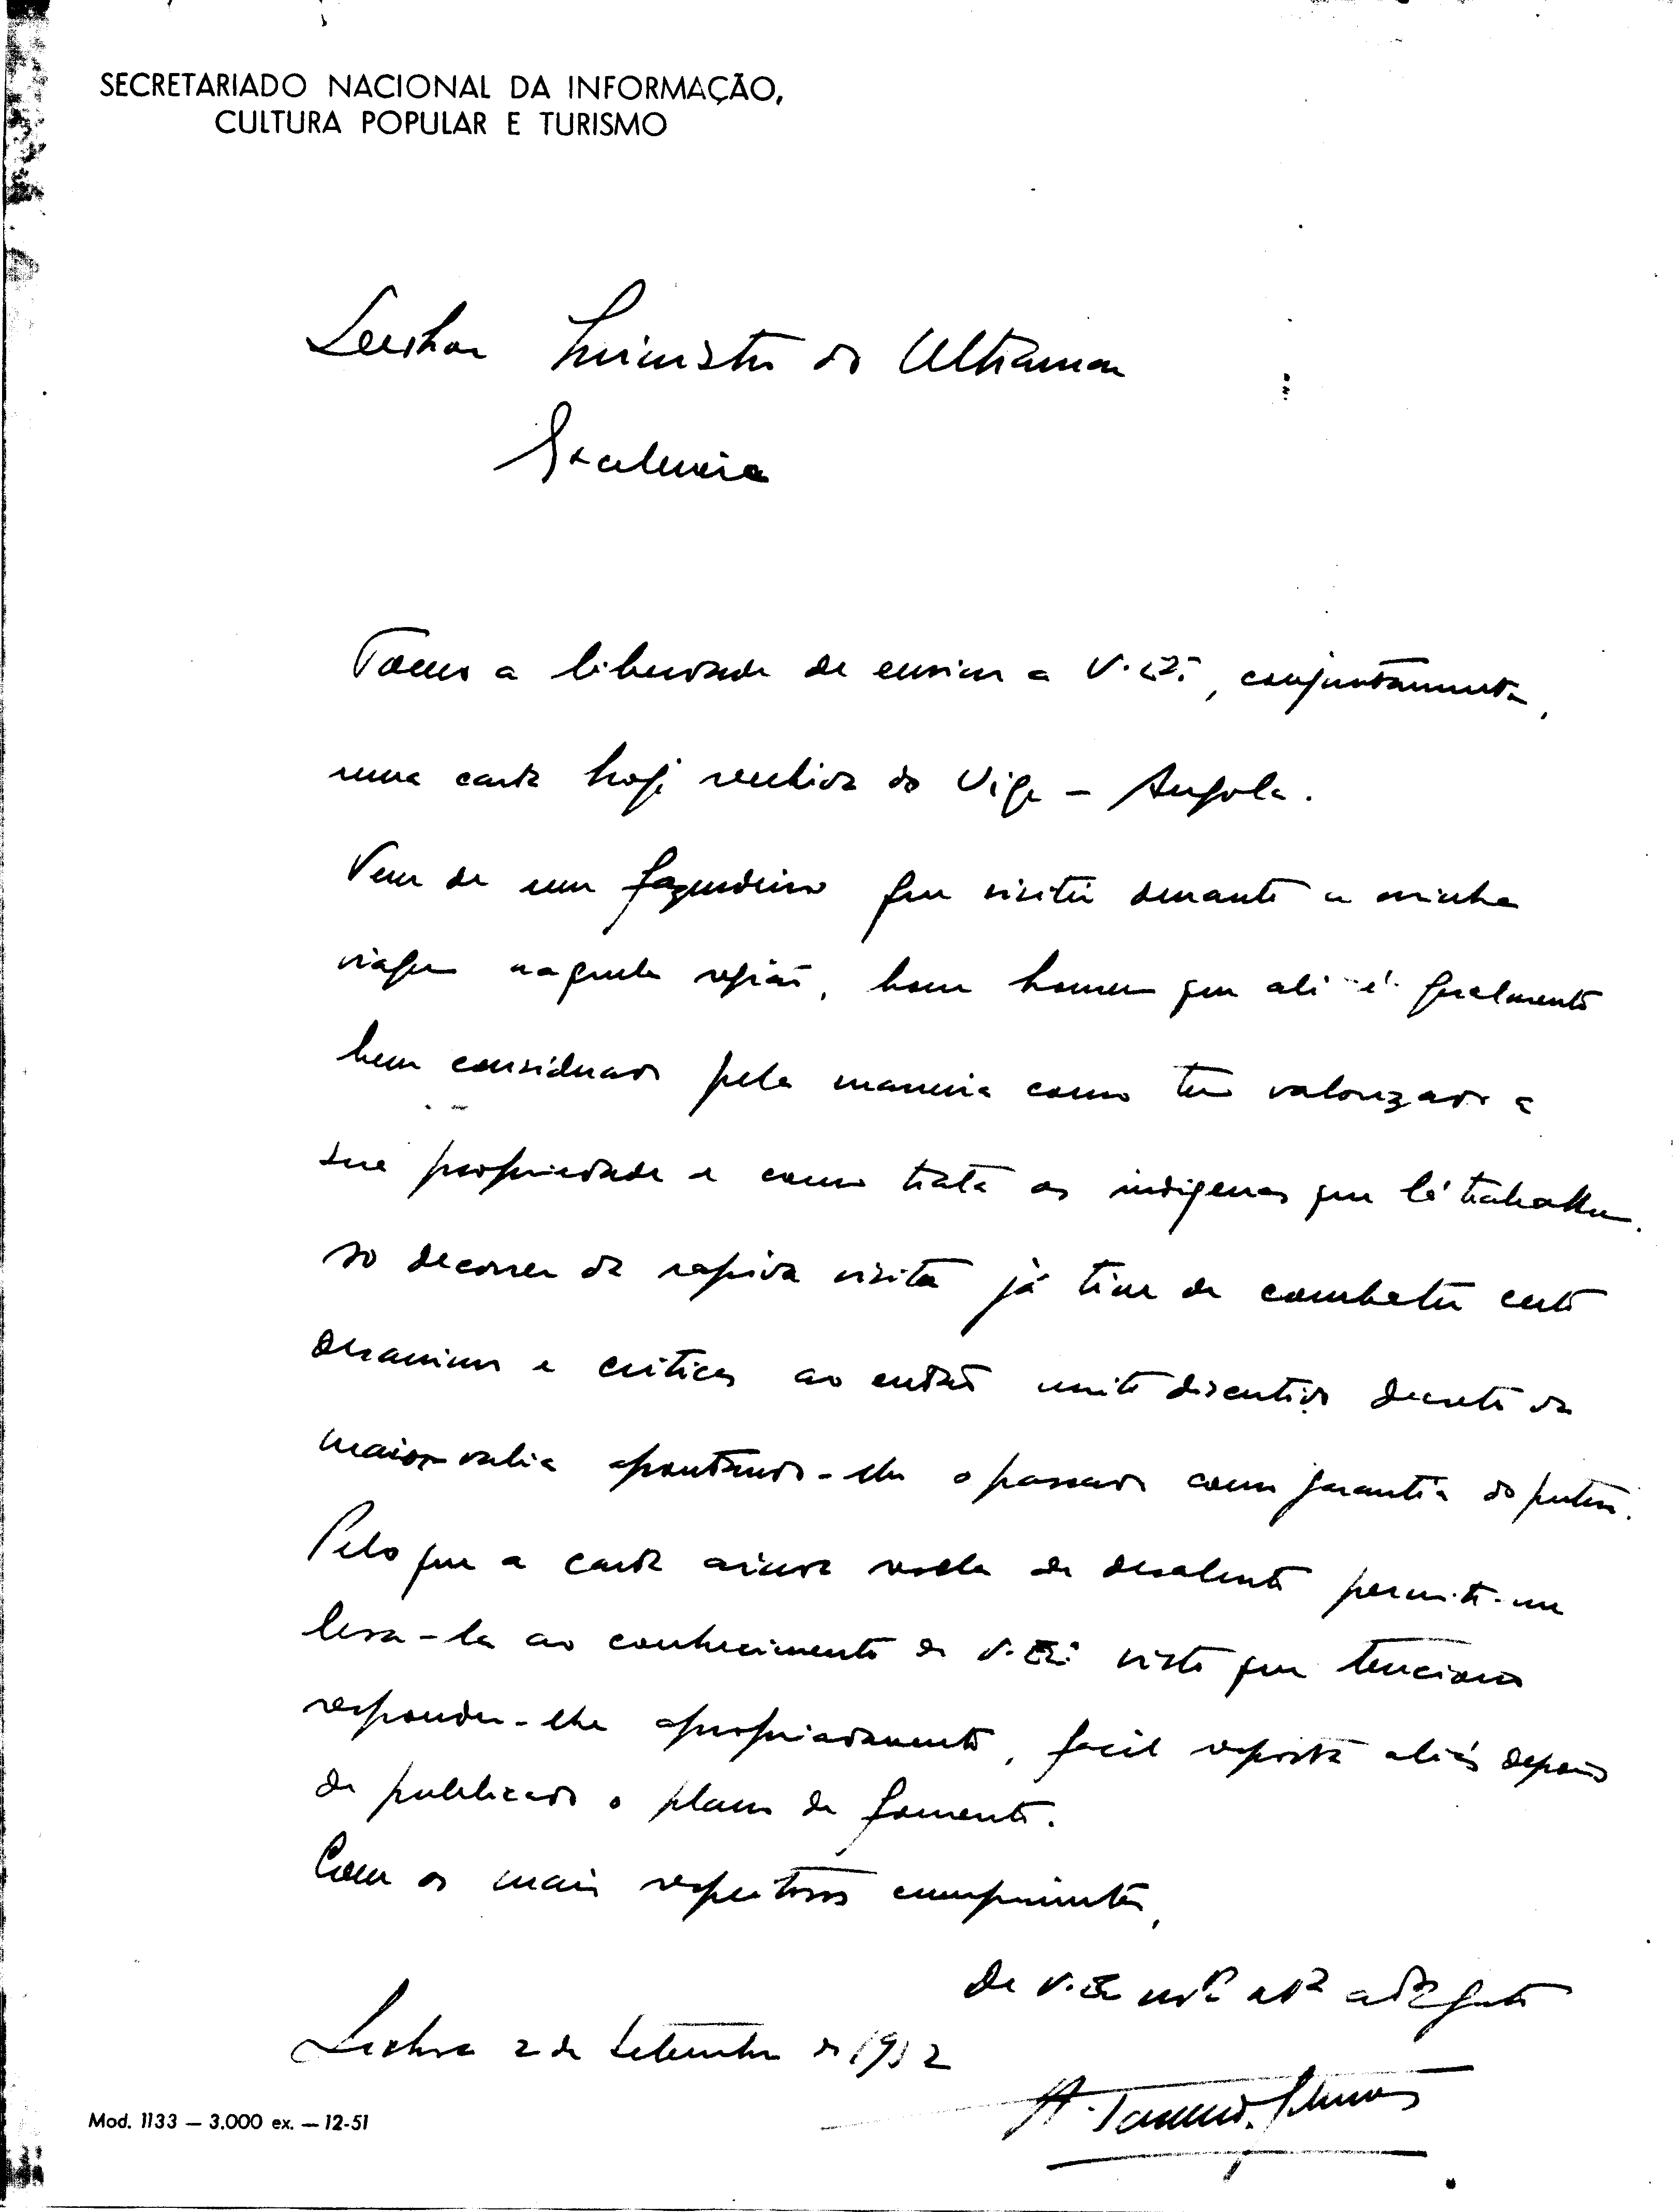 SECRETARIADO NACIONAL DA INFORMAÇÃO,
CULTURA POPULAR E TURISMO
Senhor Ministro do Ultramar
Excelencia
Tomo a liberdade de enviar a V. Exª, conjuntamente,
uma carta hoje recebida do Uige - Angola.
Vem de um fazendeiro que visitei durante a minha
viagem naquela região, bom homem que ali é geralmente
bem considerado pela maneira como tem valorizado a
sua propriedade e como trata os indigenas que lá trabalham.
No decorrer da rapida visita já tive de combater certo
desanimo e criticas ao então muito discutido decreto da
maior-valia apontando-lhe o passado como garantia do futuro.
Pelo que a carta ainda revela de desalento permito-me
leva-la ao conhecimento de V. Exª visto que tenciono
responder-lhe apropriadamente, facil resposta aliás depois
de publicado o plano de fomento.
Com os mais respeitosos cumprimentos,
De V. Exª mtº attº
Lisboa 2 de Setembro de 1952
Mod. 1133 — 3.000 ex. — 12-51